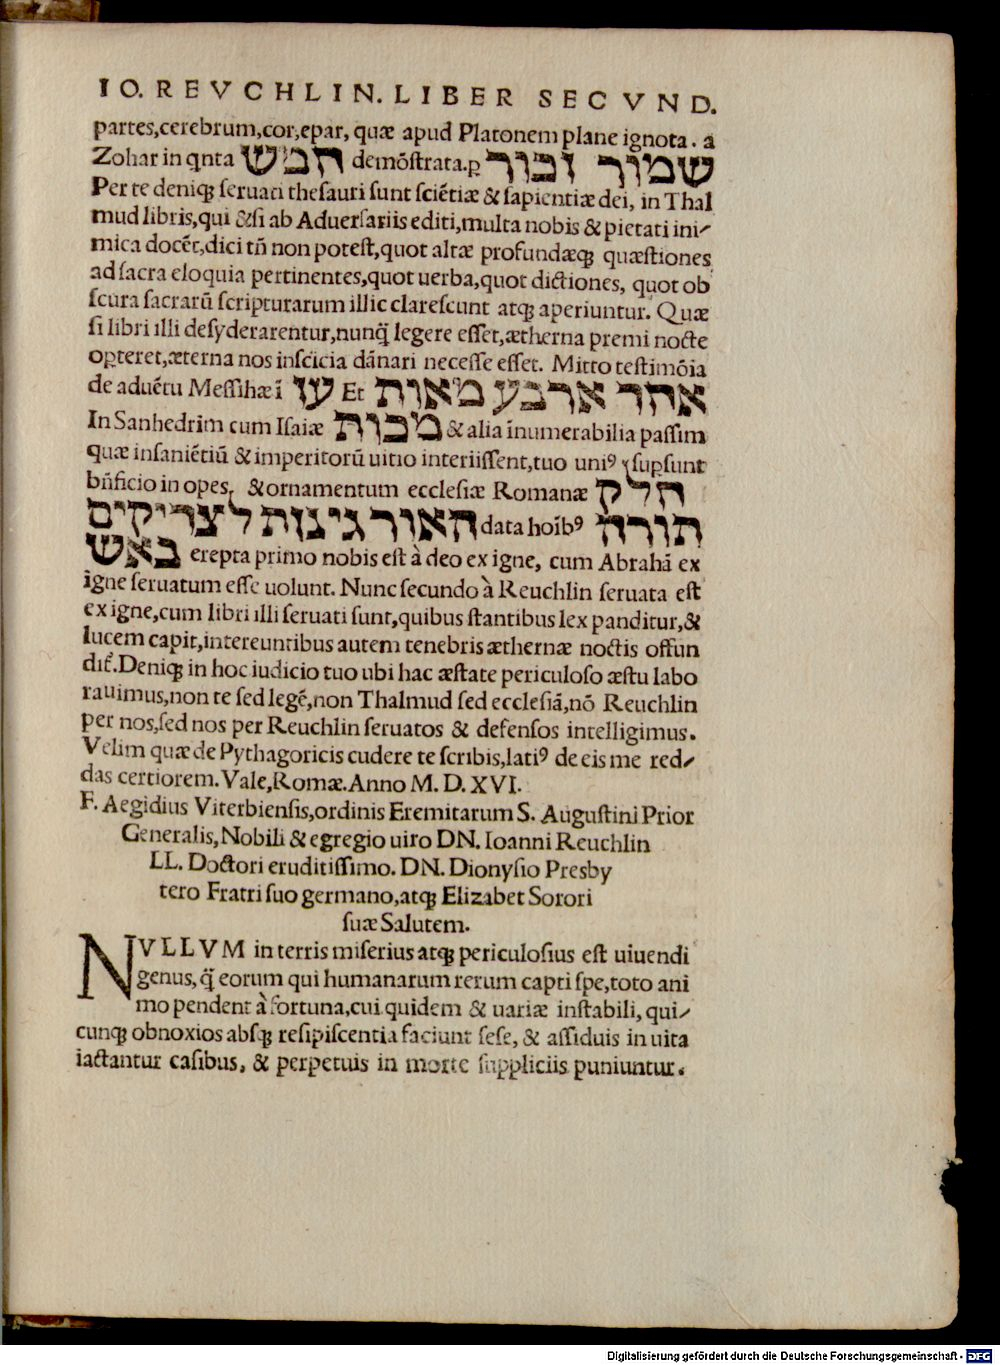 IO. REVCHLIN. LIBER SECVND.
partes,cerebrum,cor,epar, quæ apud Platonem plane ignota. a
Zohar in qnta חמש demõstrata.ꝑ שמור זכור
Per te deniqꝫ seruati thesauri sunt sciẽtiæ & sapientiæ dei, in Thal
mud libris,qui &si ab Aduersariis editi,multa nobis & pietati ini⸗
mica docẽt,dici tñ non potest,quot altæ profundæqꝫ quæstiones
ad sacra eloquia pertinentes,quot uerba,quot dictiones, quot ob
scura sacrarũ scripturarum illic clarescunt atqꝫ aperiuntur. Quæ
si libri illi desyderarentur,nunq̃ legere esset,ætherna premi nocte
oꝑteret,æterna nos inscicia dãnari necesse esset. Mitto testimõia
de aduẽtu Messihæ ĩ עו Et אחד ארבע מאות
In Sanhedrim cum Isaiæ מכות & alia ĩnumerabilia passim
quæ insaniẽtiũ & imperitorũ uitio interiissent,tuo uniꝰ suꝑsunt
bñficio in opes, & ornamentum ecclesiæ Romanæ חלק
תורה data hoĩbꝰ האור גינזת לצדיקים
באש erepta primo nobis est à deo ex igne, cum Abrahã ex
igne seruatum esse uolunt. Nunc secundo à Reuchlin seruata est
ex igne,cum libri illi seruati sunt,quibus stantibus lex panditur,&
lucem capit,intereuntibus autem tenebris æthernæ noctis offun
dit̃.Deniqꝫ in hoc iudicio tuo ubi hac æstate periculoso æstu labo
rauimus,non te sed legẽ,non Thalmud sed ecclesiã,nõ Reuchlin
per nos,sed nos per Reuchlin seruatos & defensos intelligimus.
Velim quæ de Pythagoricis cudere te scribis,latiꝰ de eis me red⸗
das certiorem. Vale,Romæ.Anno M. D. XVI.
F. Aegidius Viterbiensis,ordinis Eremitarum S. Augustini Prior
Generalis,Nobili & egregio uiro DN. Ioanni Reuchlin
LL. Doctori eruditissimo. DN. Dionysio Presby
tero Fratri suo germano,atqꝫ Elizabet Sorori
suæ Salutem.
NVLLVM in terris miserius atqꝫ periculosius est uiuendi
genus,q̃ eorum qui humanarum rerum capti spe,toto ani
mo pendent à fortuna,cui quidem & uariæ instabili, qui⸗
cunqꝫ obnoxios absqꝫ resipiscentia faciunt sese, & assiduis in uita
iactantur casibus, & perpetuis in morte suppliciis puniuntur.
Digitalisierung gefördert durch die Deutsche Forschungsgemeinschaft - DFG